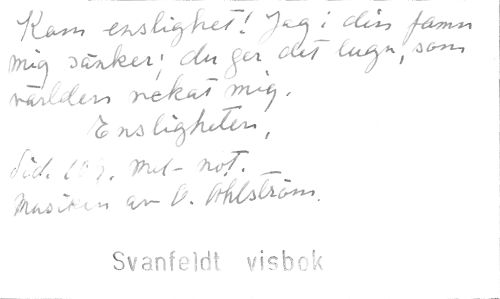 Kom enslighet! Jag i din famn
mig sänker; du ger det lugn, som
världen nekat mig.
Ensligheten,
Sid. 109. Mel- not.
Musiken av O. Åhlström.
Svanfeldt visbok